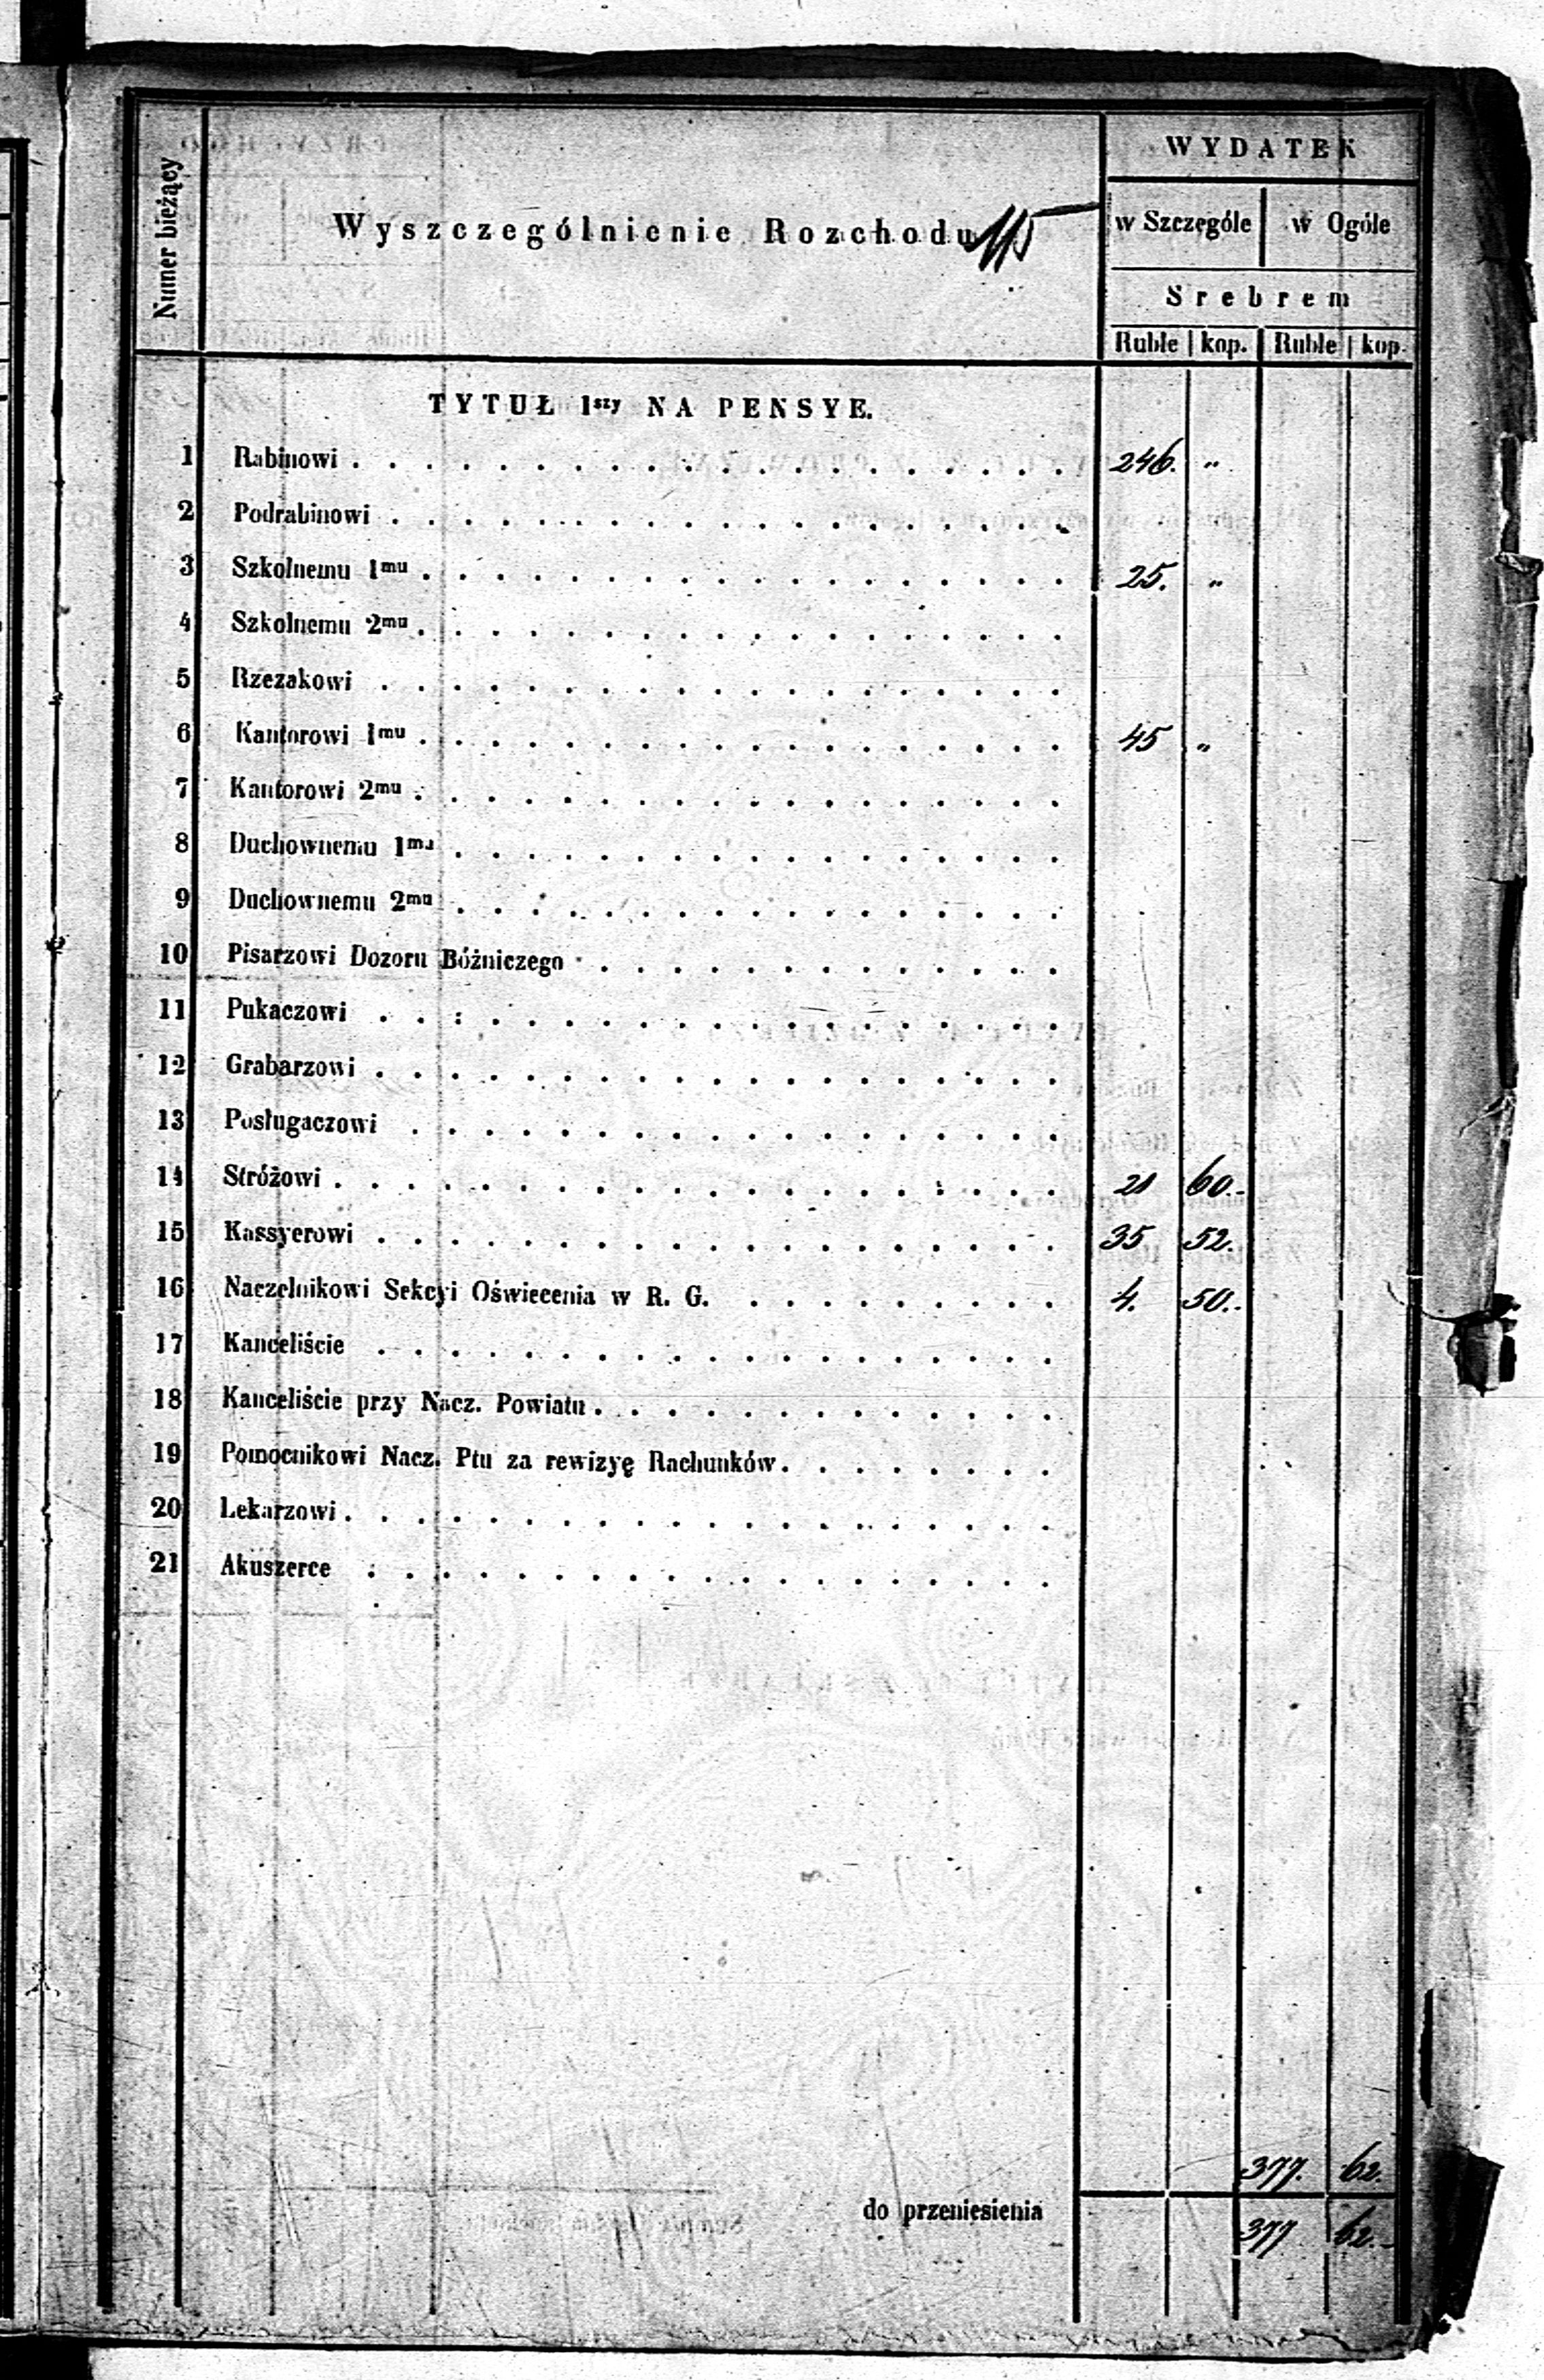 Numer bieżący
Wyszczególnienie Rozchodu 115
WYDATEK
w Szczególe w Ogóle
Srebrem
Ruble kop. Ruble kop.
TYTUŁ 1szy NA PENSYE.
1 Rabinowi . . . . . . . . . . . . . . . . . . . . 246. „
2 Podrabinowi . . . . . . . . . . . . . . . . . . .
3 Szkolnemu 1mu . . . . . . . . . . . . . . . . . . 25. „
4 Szkolnemu 2mu . . . . . . . . . . . . . . . . . .
5 Rzezakowi . . . . . . . . . . . . . . . . . . .
6 Kantorowi 1mu . . . . . . . . . . . . . . . . . . 45 „
7 Kantorowi 2mu . . . . . . . . . . . . . . . . . .
8 Duchownemu 1mu . . . . . . . . . . . . . . . . .
9 Duchownemu 2mu . . . . . . . . . . . . . . . . .
10 Pisarzowi Dozoru Bóżniczego . . . . . . . . . . . . .
11 Pukaczowi . . . . . . . . . . . . . . . . . . .
12 Grabarzowi . . . . . . . . . . . . . . . . . . .
13 Posługaczowi . . . . . . . . . . . . . . . . . .
14 Stróżowi . . . . . . . . . . . . . . . . . . . . 21 60.
15 Kassyerowi . . . . . . . . . . . . . . . . . . . 35 52.
16 Naczelnikowi Sekcyi Oświecenia w R. G. . . . . . . . . . 4. 50.
17 Kanceliście . . . . . . . . . . . . . . . . . . .
18 Kanceliście przy Nacz. Powiatu . . . . . . . . . . . . .
19 Pomocnikowi Nacz. Ptu za rewizyę Rachunków . . . . . . . .
20 Lekarzowi . . . . . . . . . . . . . . . . . . . .
21 Akuszerce . . . . . . . . . . . . . . . . . . .
377. 62.
do przeniesienia 377 62.